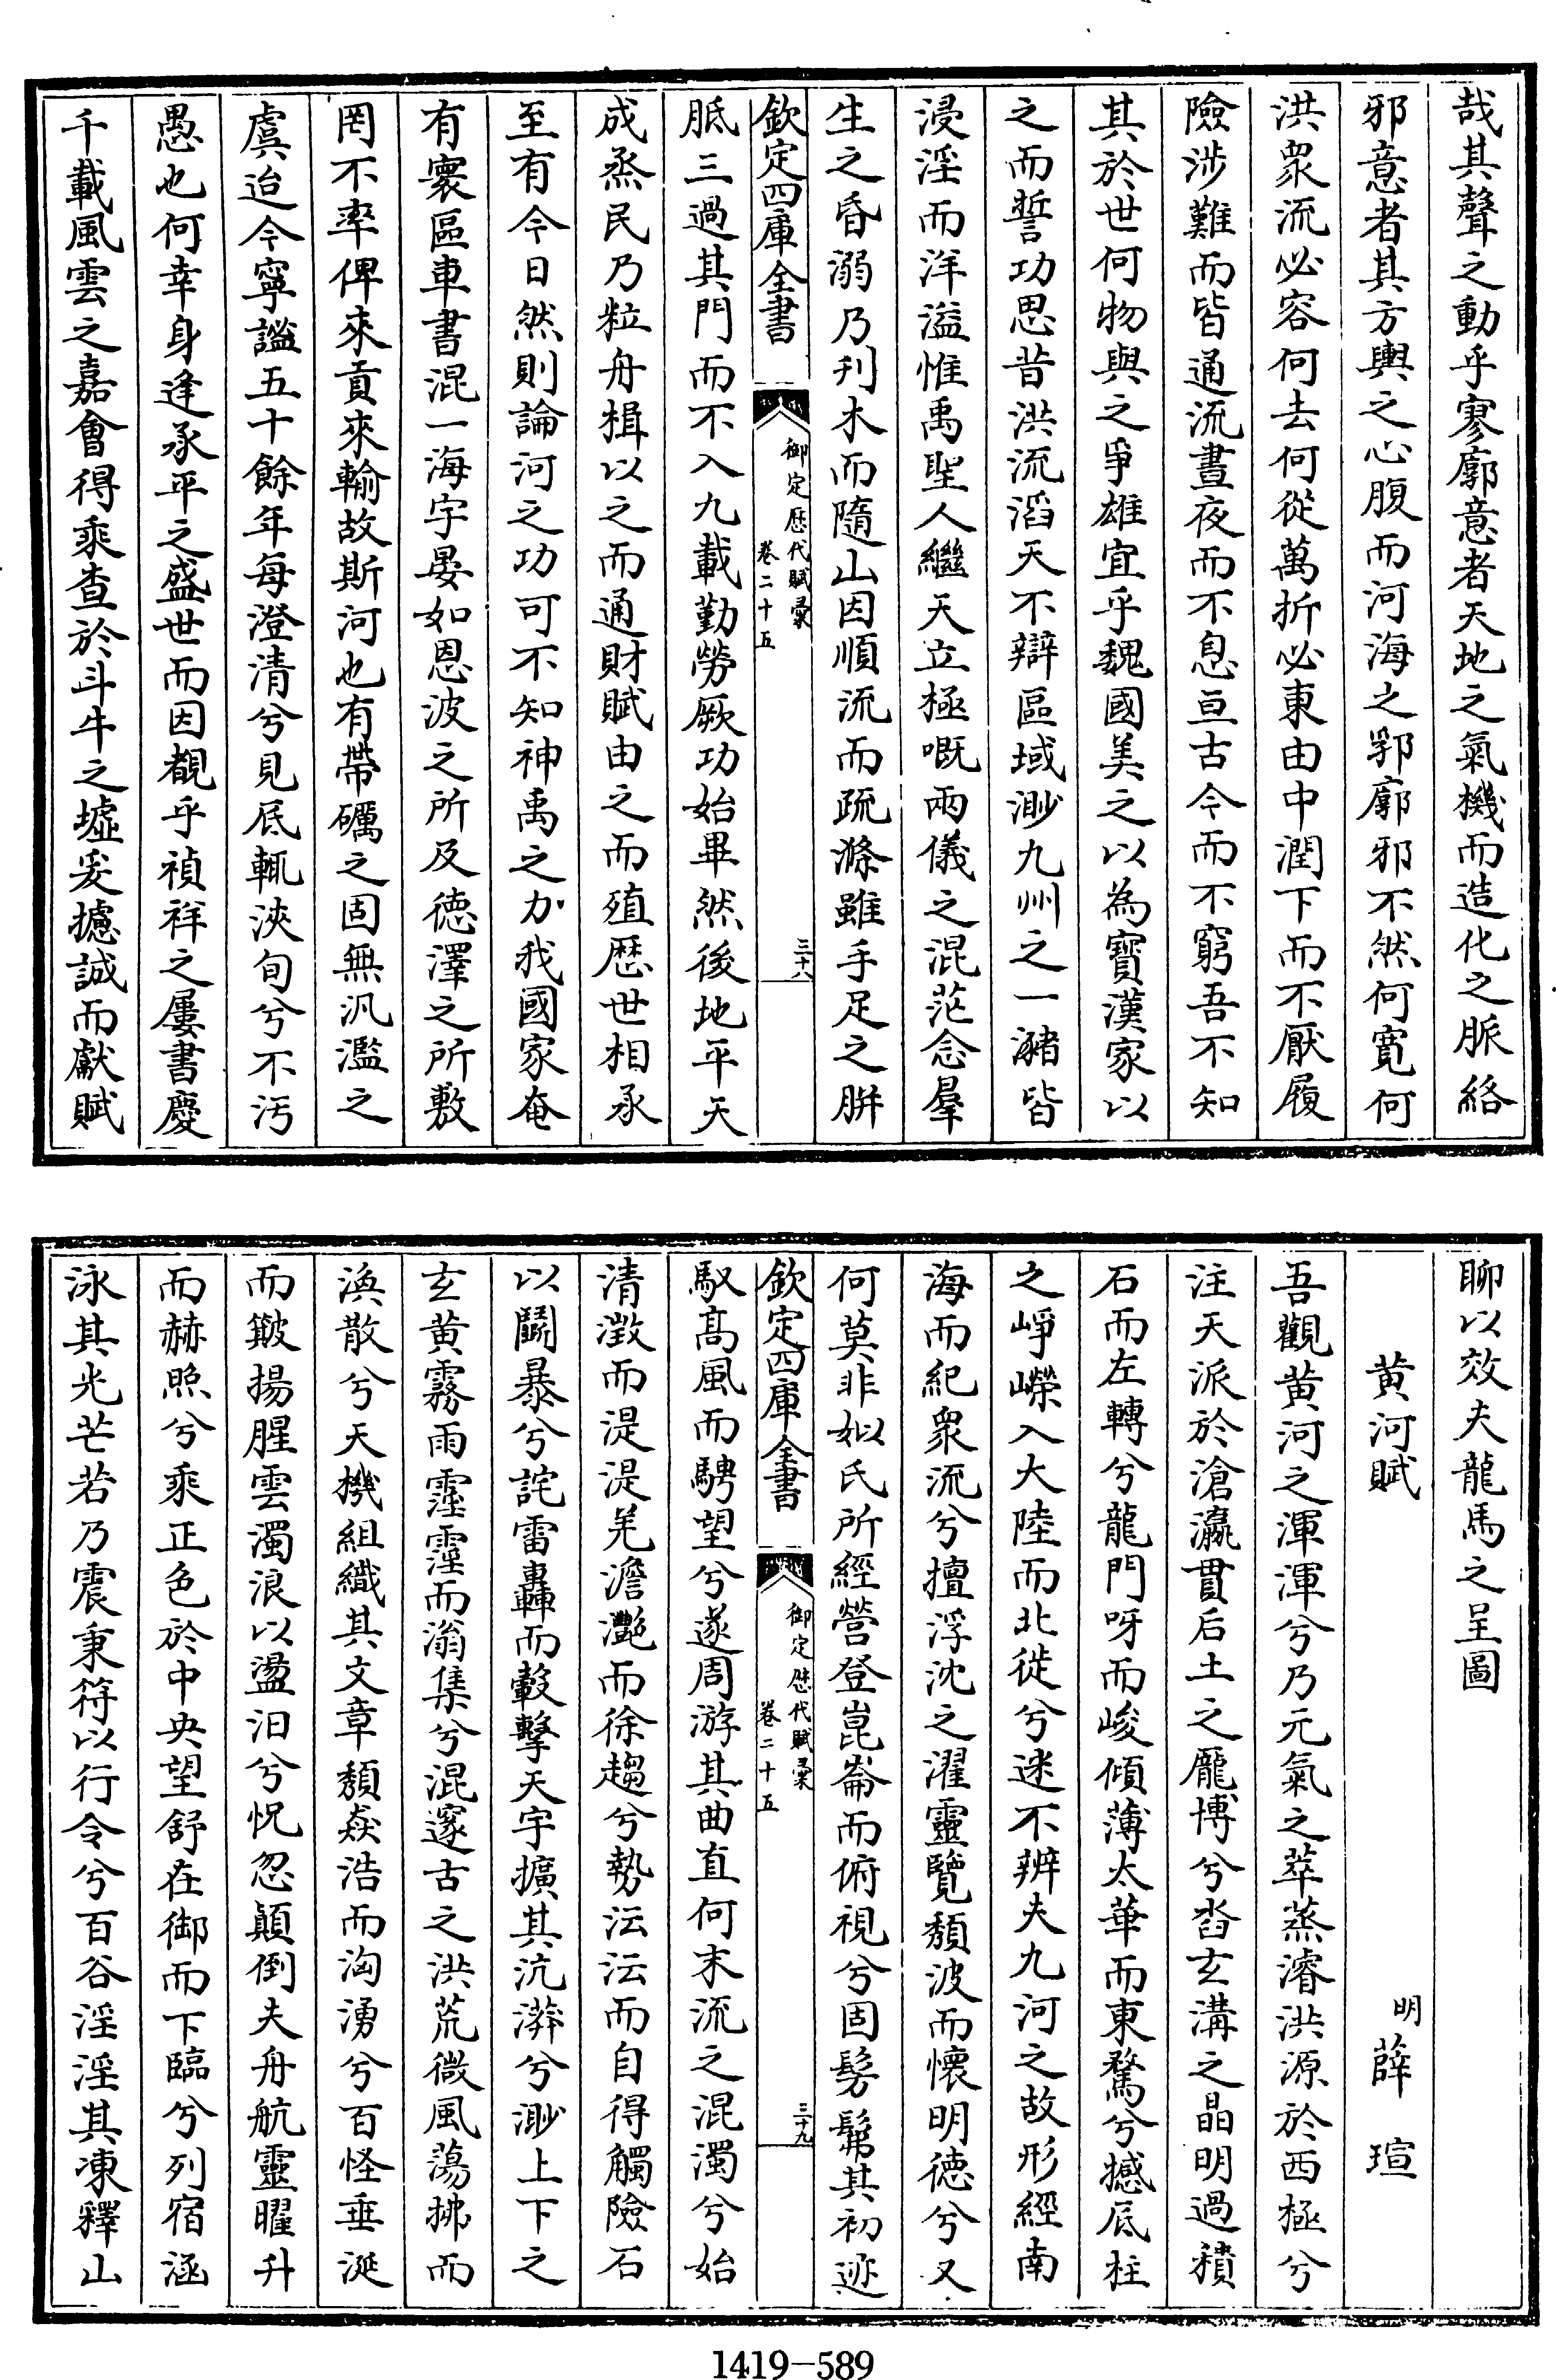 哉其聲之動乎寥廓意者天地之氣機而造化之脈絡
邪意者其方輿之心腹而河海之郛廓邪不然何寬何
洪衆流必容何去何從萬折必東由中潤下而不厭履
險涉難而皆通流晝夜而不息亘古今而不窮吾不知
其於世何物與之爭雄宜乎魏國美之以為寶漢家以
之而誓功思昔洪流滔天不辯區域渺九州之一瀦皆
浸淫而洋溢惟禹聖人繼天立極嘅兩儀之混茫念羣
生之昏溺乃刋木而隨山因順流而疏滌雖手足之胼
欽定四庫全書
御定歷代賦彙
卷二十五
三十八
胝三過其門而不入九載勤勞厥功始畢然後地平天
成烝民乃粒舟楫以之而通財賦由之而殖歷世相承
至有今日然則論河之功可不知神禹之力我國家奄
有寰區車書混一海宇晏如恩波之所及德澤之所敷
罔不率俾來貢來輸故斯河也有帶礪之固無汎濫之
虞迨今寧謐五十餘年每澄清兮見底輒浹旬兮不汚
愚也何幸身逢承平之盛世而因覩乎禎祥之屢書慶
千載風雲之嘉會得乘查於斗牛之墟爰攄誠而獻賦
聊以效夫龍馬之呈圖
黄河賦
明薛瑄
吾觀黄河之渾渾兮乃元氣之萃蒸濬洪源於西極兮
注天派於滄瀛貫后土之龐博兮沓玄溝之晶明過積
石而左轉兮龍門呀而峻傾薄太華而東騖兮撼底柱
之崢嶸入大陸而北徙兮迷不辨夫九河之故形經南
海而紀衆流兮擅浮沈之濯靈覽頹波而懷明德兮又
何莫非姒氏所經營登崑崙而俯視兮固髣髴其初迹
欽定四庫全書
御定歷代賦彙
卷二十五
三十九
馭髙風而騁望兮遂周游其曲直何末流之混濁兮始
清澂而湜湜羌澹灩而徐趨兮勢沄沄而自得觸險石
以鬭暴兮詫雷轟而轂擊天宇擴其沆漭兮渺上下之
玄黄霧雨霪霪而滃集兮混邃古之洪荒微風蕩拂而
渙散兮天機組織其文章頹焱浩而洶湧兮百怪垂涎
而皺揚腥雲濁浪以盪汨兮怳忽顛倒夫舟航靈曜升
而赫煦兮乘正色於中央望舒在御而下臨兮列宿涵
泳其光芒若乃震秉符以行令兮百谷淫淫其凍釋山
1419—589